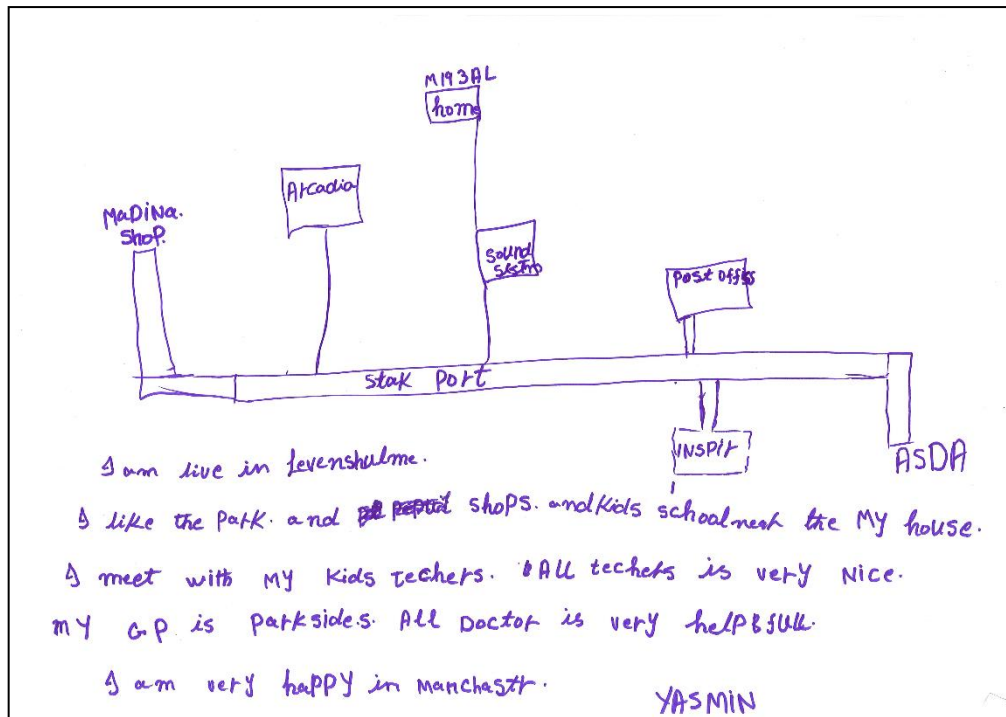 M193AL
home
Arcadia
MaDiNa.
Shop.
Sound
Post Offis
Stak Port
INSPir
ASDA
I am live in Levenshulme.
I like the Park. and shops. and Kids school near the My house.
I meet with My Kids techers. All techers is very Nice.
MY G.P. is Parkside.s. All Doctor is very help
I am very happy in Manchastr.
YASMIN